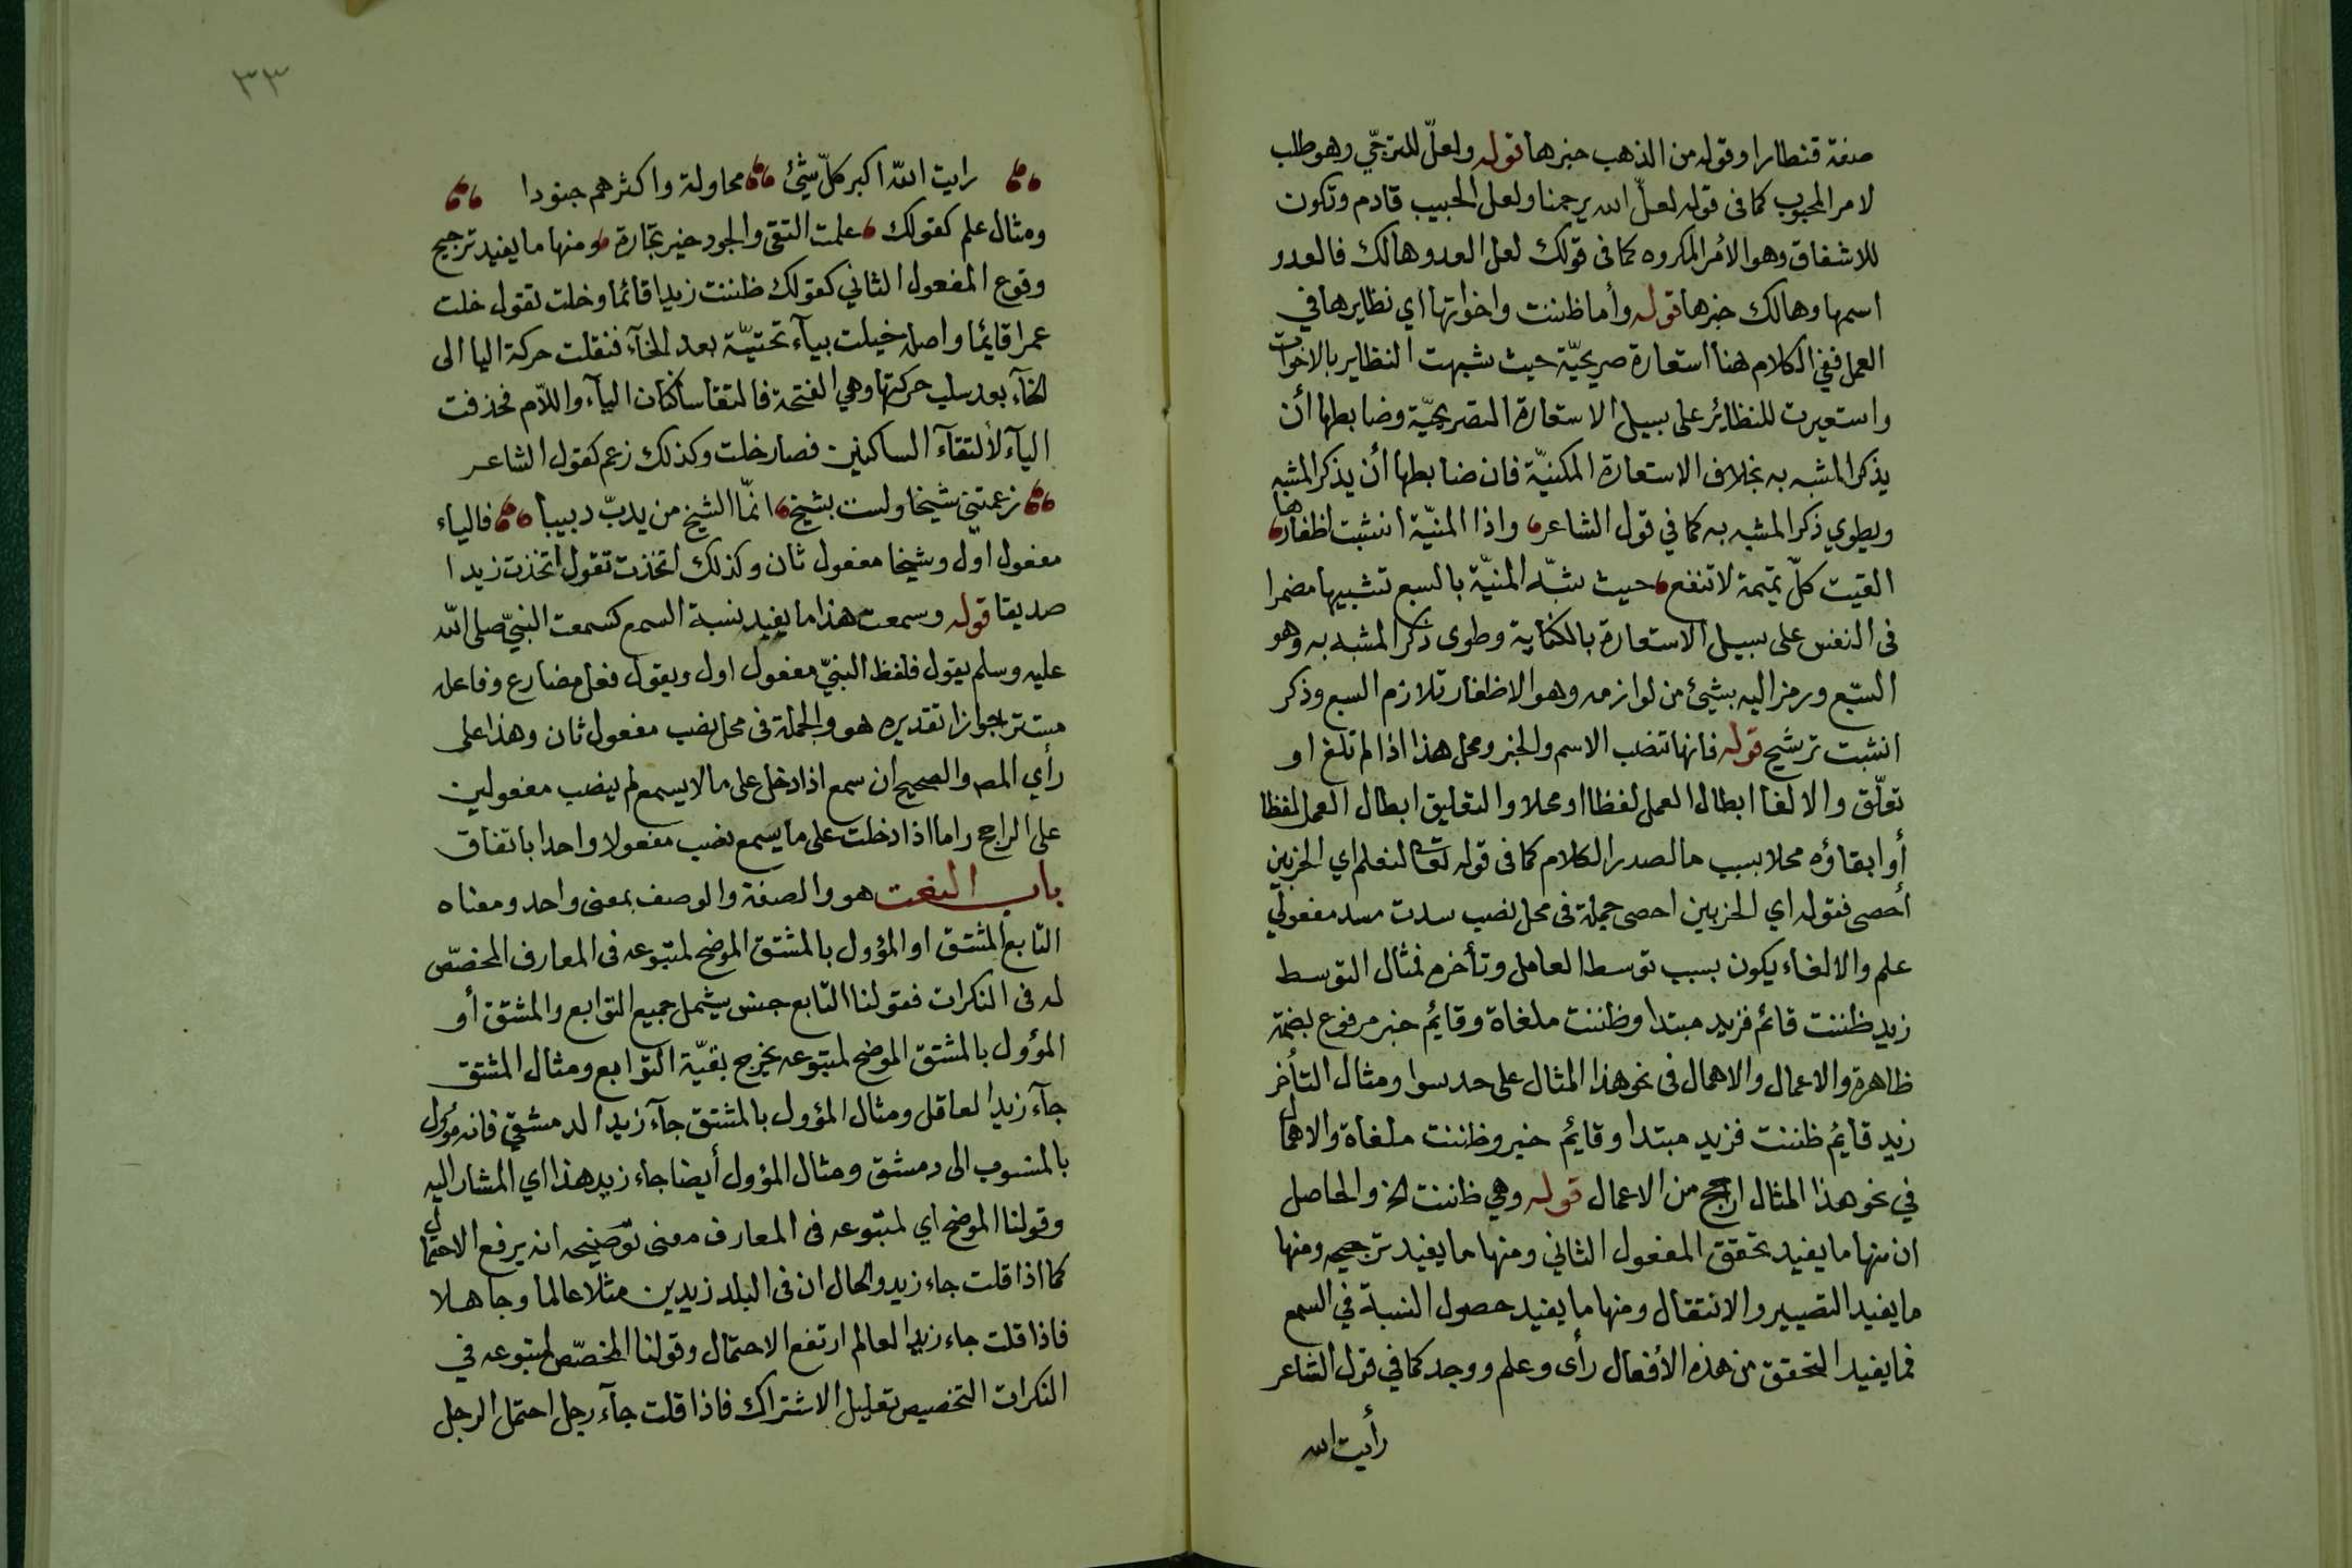 صفة قنطارا وقوله من الذهب خبرها قوله ولعلّ للترجّي وهو طلب
لامر المحبوب كما فى قوله لعلّ الله يرحمنا ولعل الحبيب قادم وتكون
للاشفاق وهو الأمر المكروه كما فى قولك لعل العدو هالك فالعدو
اسمها وهالك خبرها قوله وأما ظننت واخواتها اي نظايرها في
العمل ففي الكلام هنا استعارة صريحيّة حيث شبهت النظاير بالاخوات
واستعيرت للنظائر على سبيل الاستعارة التصريحيّة وضابطها أن
يذكر المشبه به بخلاف الاستعارة المكنيّة فان ضابطها أن يذكر المشبه
ويطوي ذكر المشبه به كما في قول الشاعر واذا المنيّة انشبت اظفارها
القيت كلّ تميمة لا تنفع حيث شبّه المنيّة بالسبع تشبيها مضمرا
فى النفس على سبيل الاستعارة بالكناية وطوى ذكر المشبه به وهو
السّبع ورمز اليه بشيئ من لوازمه وهو الاظفار تلازم السبع وذكر
انشبت ترشيح قوله فانها تنصب الاسم والخبر ومحل هذا اذا لم تلغ او
تعلّق والالغا ابطال العمل لفظا او محلا والتعليق ابطال العمل لفظا
أو ابقاؤه محلا بسبب ما لصدر الكلام كما فى قوله تعالى لنعلم اي الحزبين
أحصى فقوله اي الحزبين احصى جملة فى محل نصب سدت مسد مفعولي
علم والالغاء يكون بسبب توسط العامل وتأخره فمثال التوسط
زيد ظننت قائم فزيد مبتدا وظننت ملغاة وقايم خبر مرفوع بضمة
ظاهرة والاعمال والاهمال فى نحو هذا المثال على حد سوا ومثال التأخر
زيد قايم ظننت فزيد مبتدا وقايم خبر وظننت ملغاة والاهمال
في نحو هذا المثال ارجح من الاعمال قوله وهي ظننت الخ والحاصل
ان منها ما يفيد تحقق المفعول الثاني ومنها ما يفيد ترجيحه ومنها
ما يفيد التصيير والانتقال ومنها ما يفيد حصول النسبة في السمع
فما يفيد التحقق من هذه الأفعال رأى وعلم ووجد كما في قول الشاعر
رأيت الله
٣٣
رايت الله اكبر كلّ شيئ محاولة واكثرهم جنودا
ومثال علم كقولك علمت التقى والجود خير تجارة ومنها ما يفيد ترجيح
وقوع المفعول الثاني كقولك ظننت زيدا قائما وخلت تقول خلت
عمرا قايما واصله خيلت بيآء تحتيّة بعد الخآء فنقلت حركة اليا الى
الخآء بعد سلب حركتها وهي الفتحة فالتقا ساكنان اليآء واللّام فحذفت
اليآء لألتقآء الساكنين فصار خلت وكذلك زعم كقول الشاعر
زعمتني شيخا ولست بشيخ انمّا الشيخ من يدبّ دبيبا فالياء
مفعول اول وشيخا مفعول ثان وكذلك اتخذت تقول اتخذت زيدا
صديقا قوله وسمعت هذا ما يفيد نسبة السمع كسمعت النبيّ صلى الله
عليه وسلم يقول فلفظ النبيّ مفعول اول ويقول فعل مضارع وفاعله
مستتر جوازا تقديره هو والجملة فى محل نصب مفعول ثان وهذا على
رأي المص والصحيح ان سمع اذا دخل على ما لا يسمع لم ينصب مفعولين
على الراجح واما اذا دخلت على ما يسمع نصب مفعولا واحدا باتفاق
باب النعت هو والصفة والوصف بمعنى واحد ومعناه
التابع المشتق او المؤول بالمشتق الموضح لمتبوعه فى المعارف المخصّص
له فى النكرات فقولنا التابع جنس يشمل جميع التوابع والمشتق أو
المؤول بالمشتق الموضح لمتبوعه يخرج بقيّة التوابع ومثال المشتق
جآء زيد العاقل ومثال المؤول بالمشتق جآء زيد الدمشقي فانه مؤول
بالمنسوب الى دمشق ومثال المؤول أيضا جاء زيد هذا اي المشار اليه
وقولنا الموضح اي لمتبوعه فى المعارف معنى توضيحه انه يرفع الاحتمال
كما اذا قلت جاء زيد والحال ان فى البلد زيدين مثلا عالما وجاهلا
فاذا قلت جاء زيد العالم ارتفع الاحتمال وقولنا المخصّص لمتبوعه في
النكرات التخصيص تقليل الاشتراك فاذا قلت جآء رجل احتمل الرجل